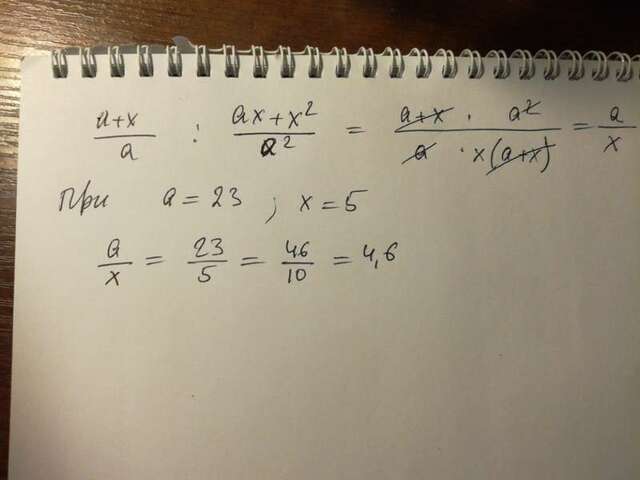 (a+x)/a : (ax+x²)/a² = ((a+x) · a²)/(a · x(a+x)) = a/x
При a = 23 ; x = 5
a/x = 23/5 = 46/10 = 4,6